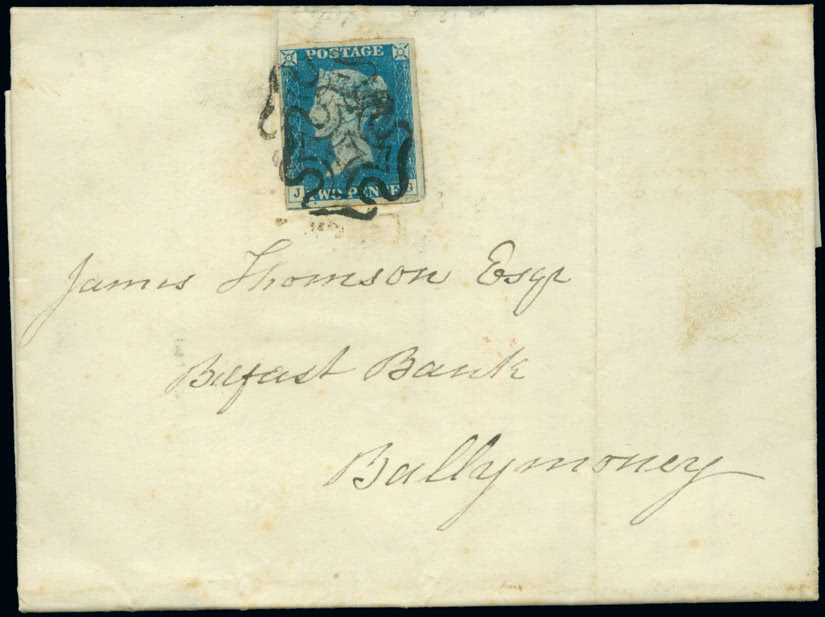 POSTAGE
J TWO PENCE G
James Thomson Esqr
Belfast Bank
Ballymoney